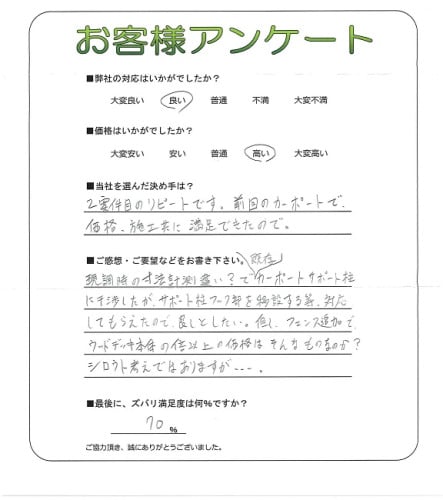 お客様アンケート
■弊社の対応はいかがでしたか？
大変良い 良い 普通 不満 大変不満
■価格はいかがでしたか？
大変安い 安い 普通 高い 大変高い
■当社を選んだ決め手は？
2案件目のリピートです。前回のカーポートで、
価格、施工共に満足できたので。
■ご感想・ご要望などをお書き下さい。
既存
現調時の寸法計測違い？でカーポートサポート柱
に干渉したが、サポート柱フック部を移設する等、対応
してもらえたので、良しとしたい。但し、フェンス追加で、
ウッドデッキ本体の倍以上の価格はそんなものなのか？
シロウト考えではありますが---。
■最後に、ズバリ満足度は何%ですか？
70 %
ご協力頂き、誠にありがとうございました。